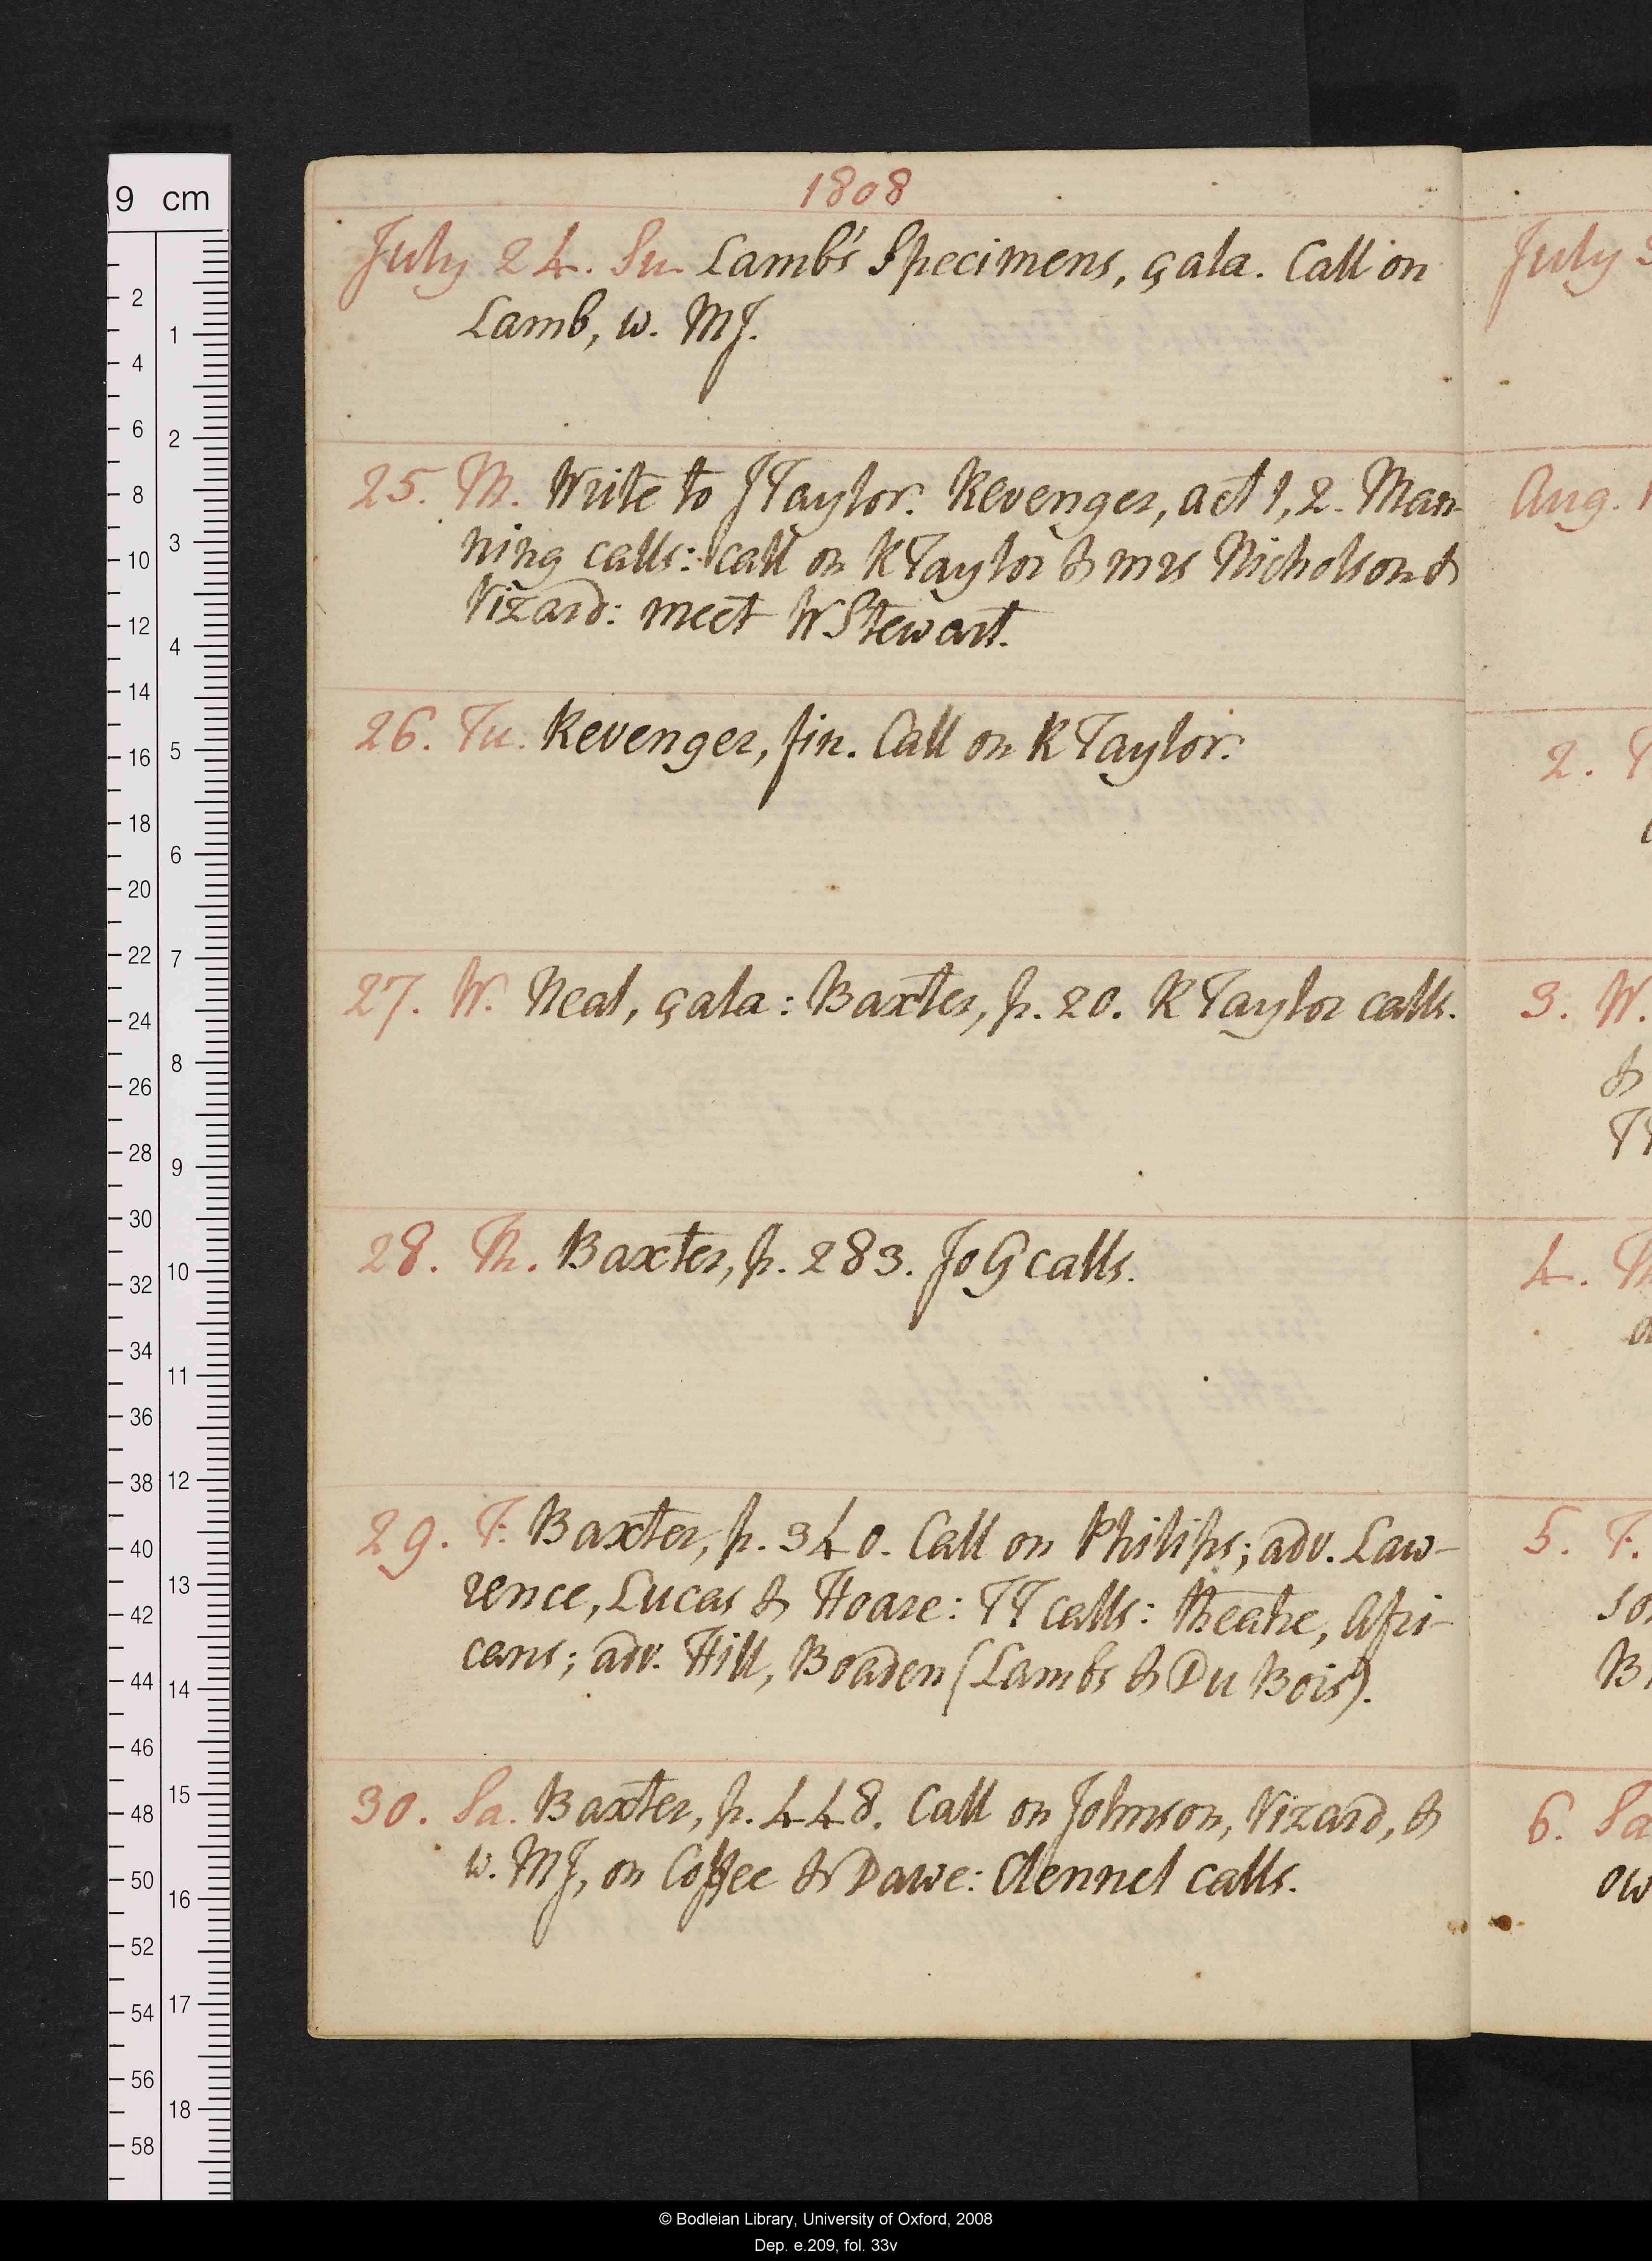 1808
July 24. Su. Lamb's Specimens, çala. Call on
Lamb, w. MJ.
25. M. Write to JTaylor. Revenger, act 1, 2. Man-
ning calls: call on RTaylor & mrs Nicholson &
Vizard: meet WStewart.
26. Tu. Revenger, fin. Call on RTaylor.
27. W. Neal, çala: Baxter, p. 20. RTaylor calls.
28. Th. Baxter, p. 283. JoG calls.
29. F. Baxter, p. 340. Call on Philips; adv. Law-
rence, Lucas & Hoare: TT calls: theatre, Afri-
cans; adv. Hill, Boaden (Lambs & Du Bois).
30. Sa. Baxter, p. 448. Call on Johnson, Vizard, &
w. MJ, on Coffee & Dawe: Clennel calls.
July 3
Aug. 1
2. T
3. W.
&
TT
4. Th
5. F.
so
B
6. Sa
ow
9 cm
2
4
6
8
10
12
14
16
18
20
22
24
26
28
30
32
34
36
38
40
42
44
46
48
50
52
54
56
58
1
2
3
4
5
6
7
8
9
10
11
12
13
14
15
16
17
18
© Bodleian Library, University of Oxford, 2008
Dep. e.209, fol. 33v